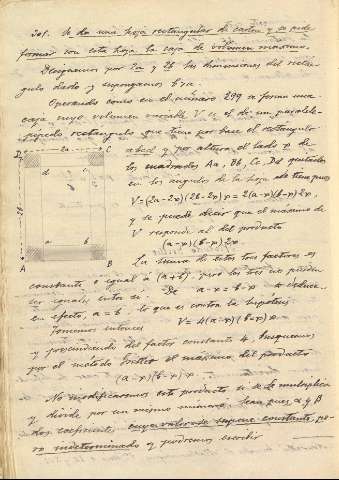 301. Se da una hoja rectangular de carton y se pide
formar con esta hoja la caja de volumen máximo.
Designemos por 2a y 2b las dimensiones del rectán-
gulo dado y supongamos b>a.
Operando como en el número 299 se forma una
caja cuyo volumen variable V es el de un paralele-
pípedo rectángulo que tiene por base el rectángulo
abcd y por altura el lado x de
los cuadrados Aa, Bb, Cc, Dd quitados
en los ángulos de la hoja se tiene pues
V=(2a-2x)(2b-2x)x = 2(a-x)(b-x)2x,
y se puede decir que el máximo de
V responde al del producto
(a-x)(b-x)2x
La suma de estos tres factores es
constante o igual á (a+b), pero los tres no pueden
ser iguales entre si. De a-x=b-x se deduce
en efecto, a=b, lo que es contra la hipótesis
Pongamos entonces V=4(a-x)(b-x)x
y prescindiendo del factor constante 4, busquemos
por el método el máximo del producto
(a-x)(b-x)x
No modificaremos este producto si se le multiplica
y divide por un mismo número. Sean pues α y β
dos coeficientes cuyo valor se supone constante, pe-
ro indeterminado y podremos escribir
D
2a
C
d
c
2b
a
b
A
B